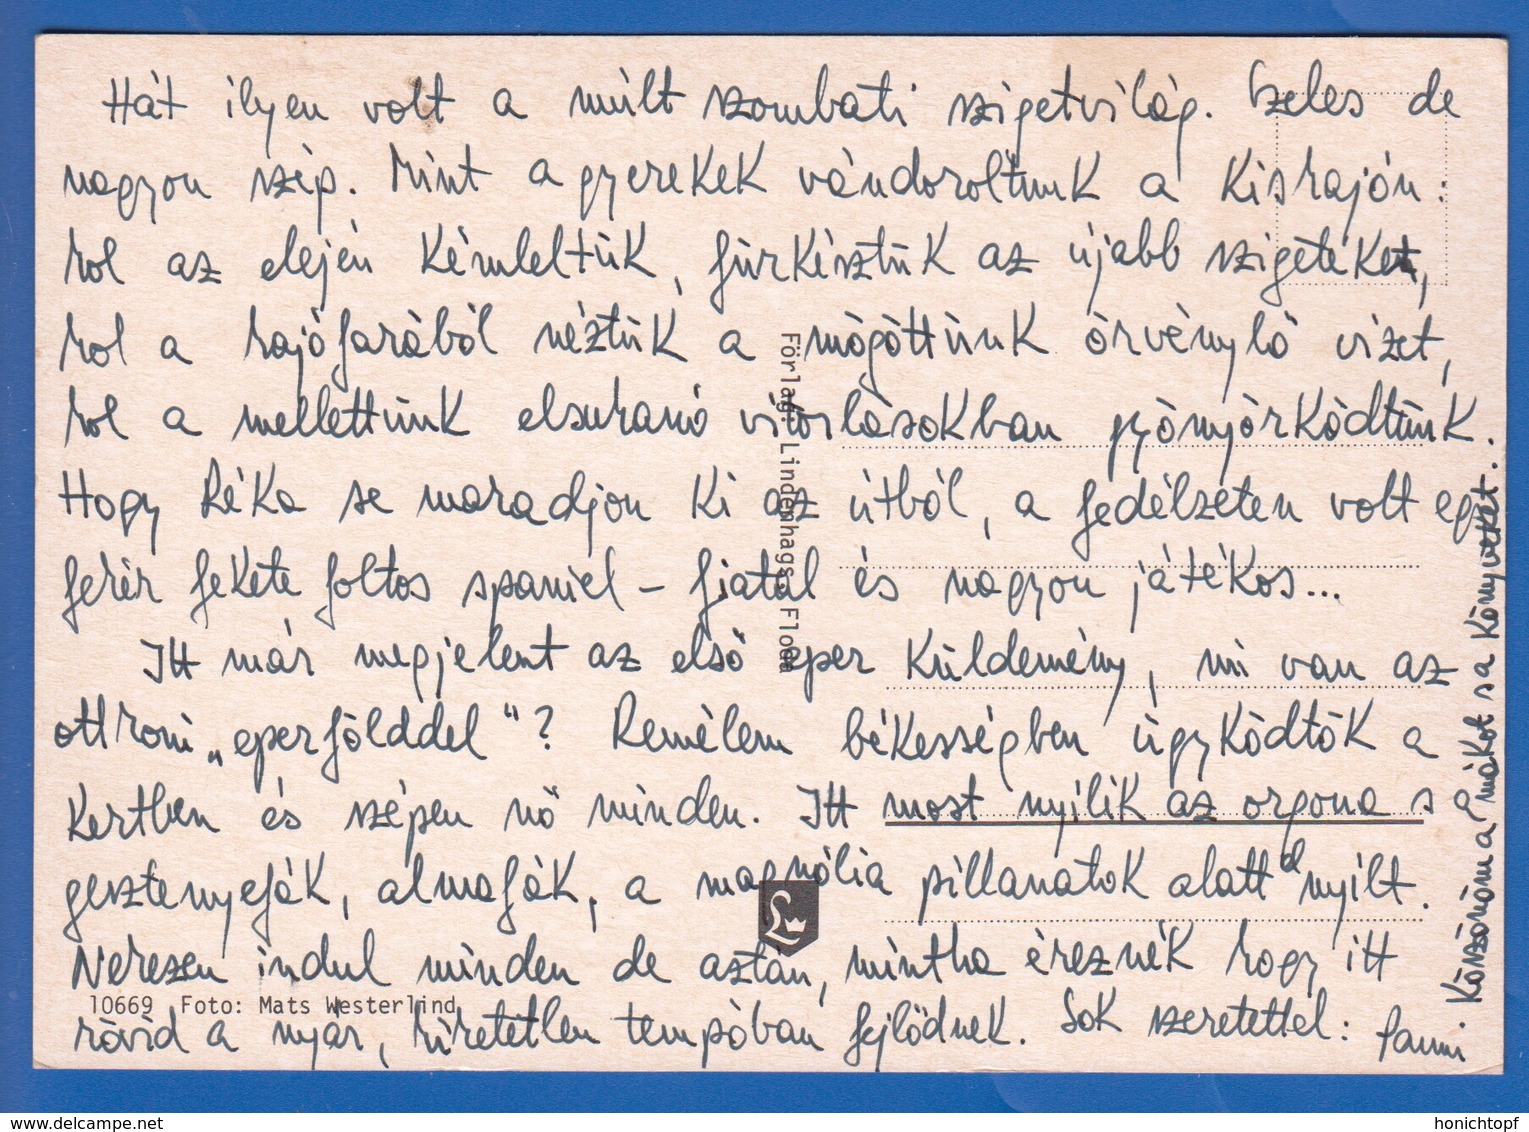 Hát ilyen volt a múlt szombati szigetvilág. Szeles de
nagyon szép. Mint a gyerekek vándoroltunk a kishajón:
hol az elején kémleltük, fürkésztük az újabb szigeteket,
hol a hajófarából néztük a mögöttünk örvénylő vizet,
hol a mellettünk elsuhanó vitorlásokban gyönyörködtünk.
Hogy Réka se maradjon ki az útból, a fedélzeten volt egy
fehér fekete foltos spaniel – fiatal és nagyon játékos...
Itt már megjelent az első eper küldemény, mi van az
ottroni „eperfölddel"? Remélem békességben ügyködtök a
kertben és szépen nő minden. Itt most nyílik az orgona s a
gesztenyefák, almafák, a magnólia pillanatok alatt el nyílt.
Nehezen indul minden de aztán, mintha éreznék hogy itt
rövid a nyár, hihetetlen tempóban fejlődnek. Sok szeretettel: Panni
Köszönöm a mákot s a könyveket.
Förlag: Lindenhags, Floda
L
10669 Foto: Mats Westerlind
honichtopf